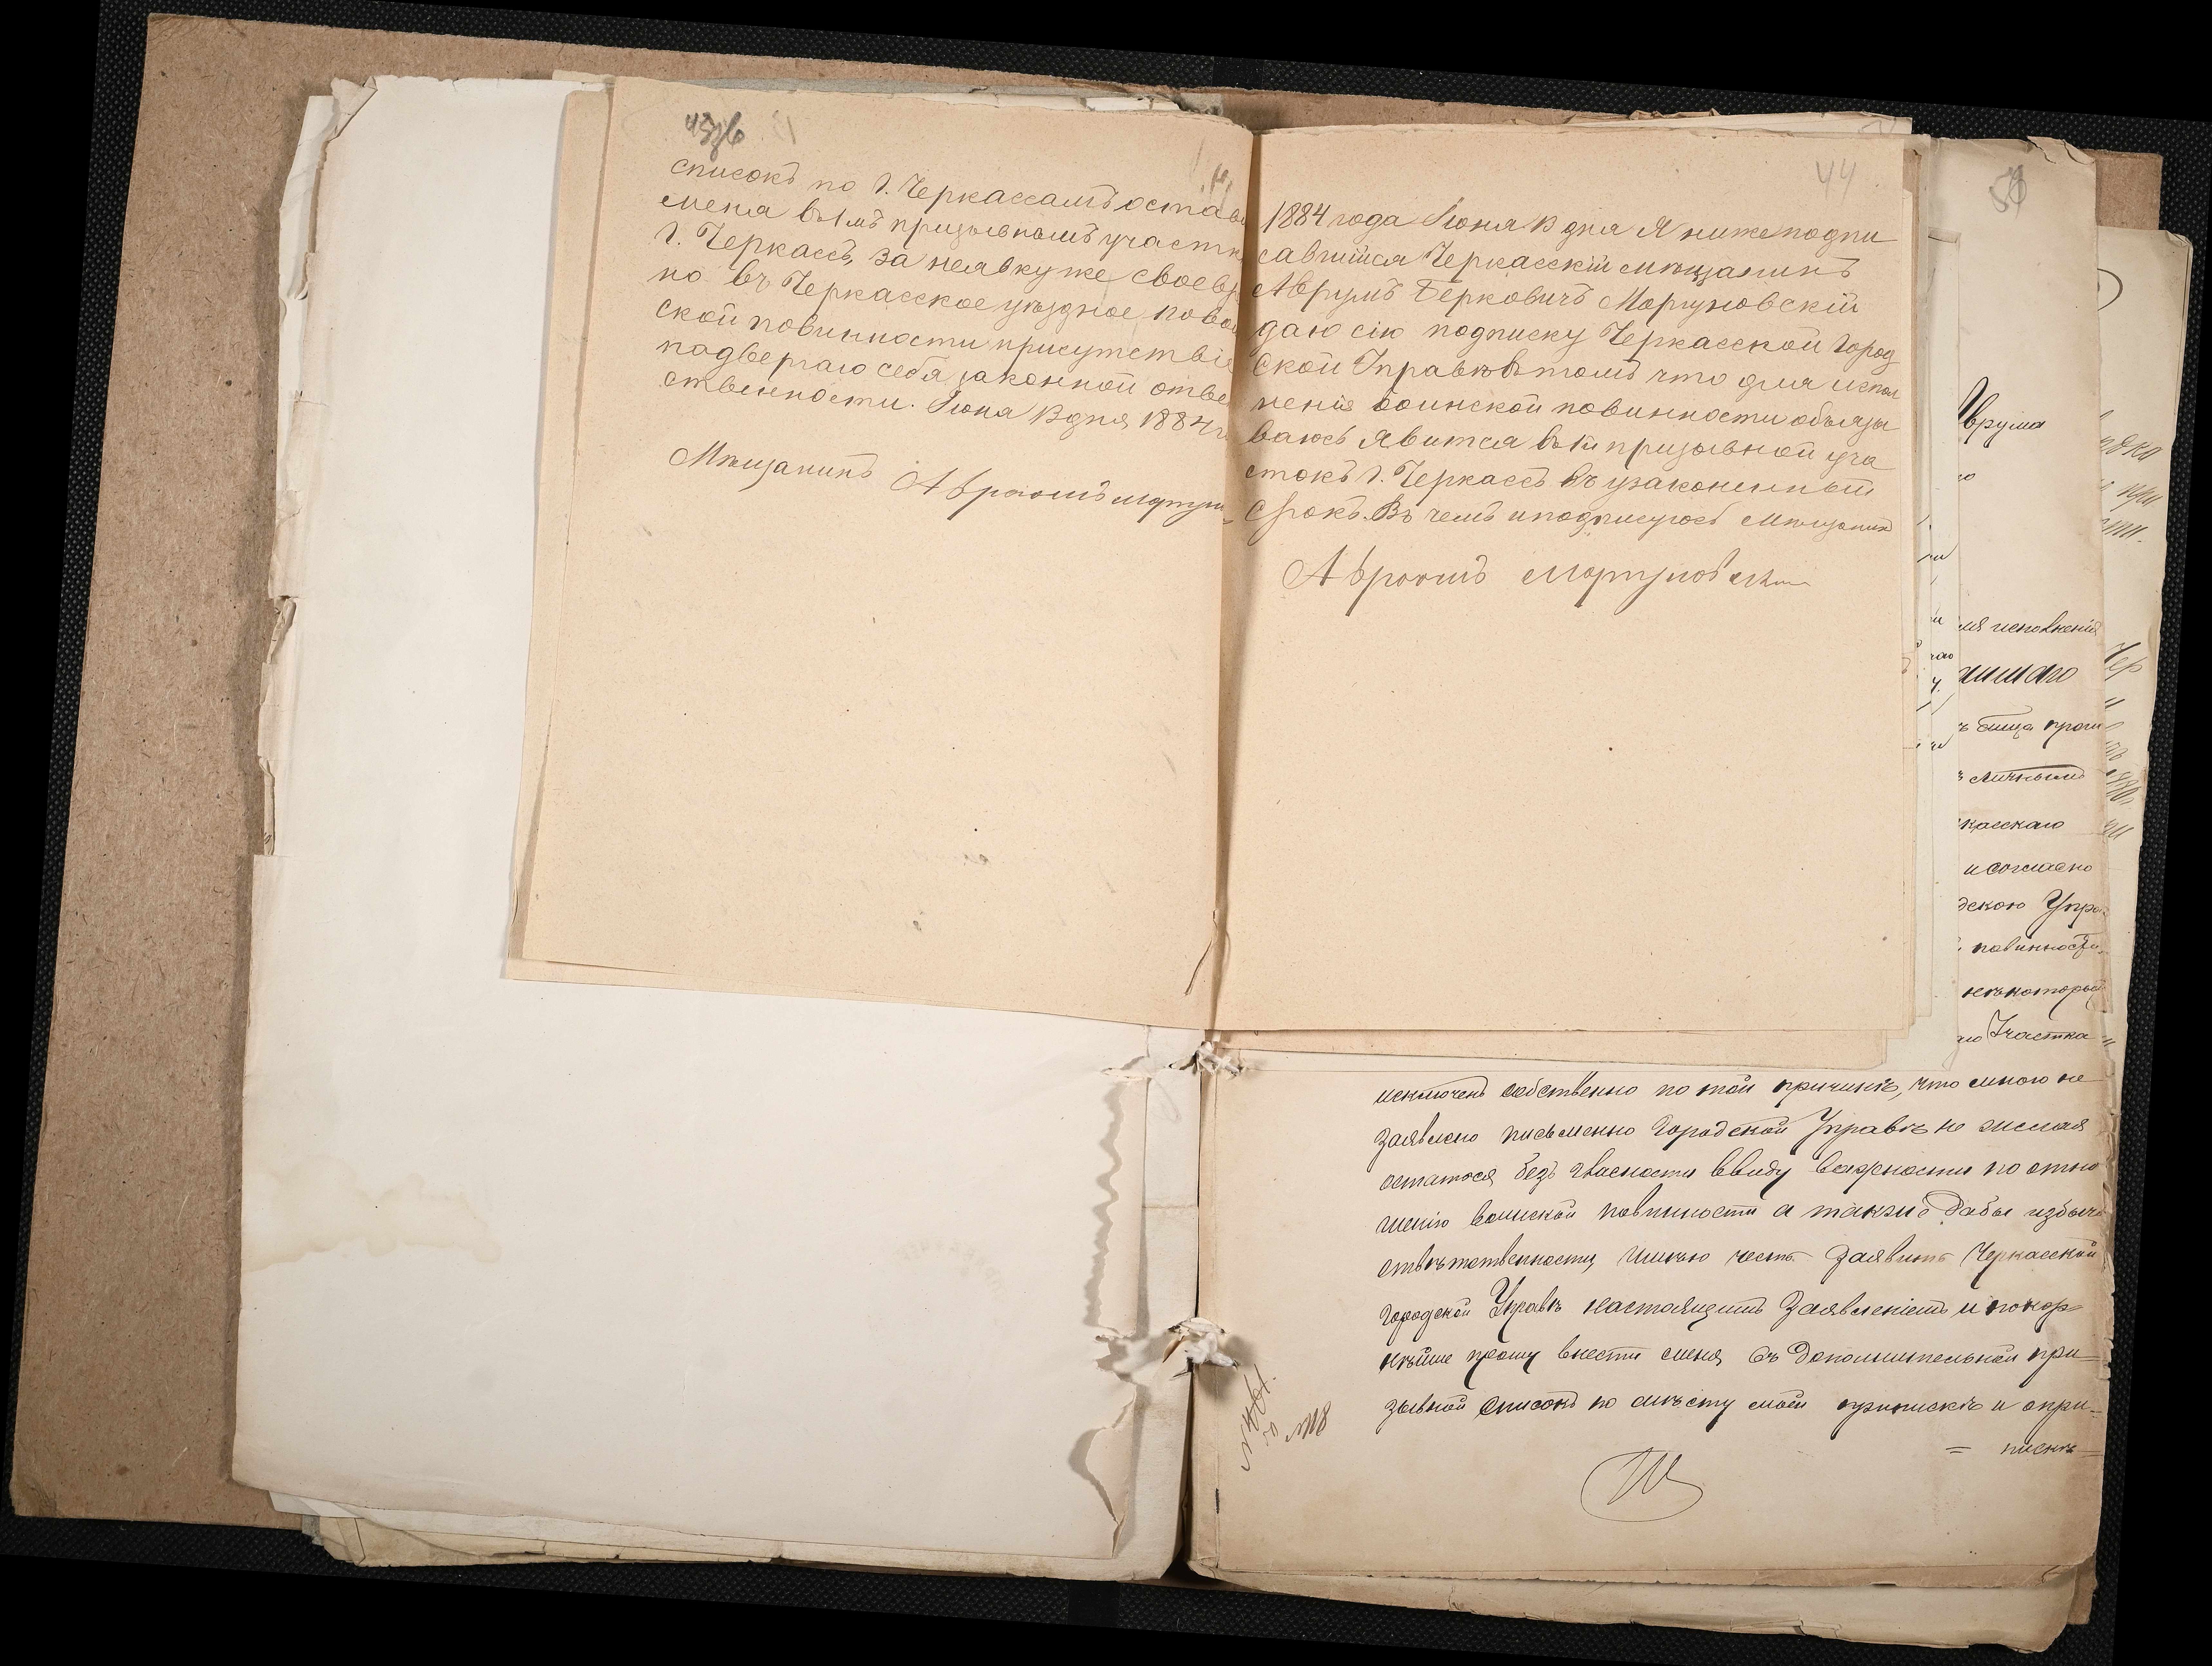 списокъ по г. Черкассамъ остави
меня въ 1мъ призывномъ участк
г. Черкассъ, за неявку же своевр
но въ Черкасское уѣздное по вои
ской повинности присутствіе
подвергаю себя законной отве
ственности. Іюня 13 дня 1884 г
Мѣщанинъ Авраомъ Моргун
44
1884 года Іюня 13 дня Я нижеподпи
савшійся Черкасскій мѣщанинъ
Аврумъ Берковичъ Моргуновскій
даю сію подписку Черкасской Город
ской Управѣ въ томъ что для испол
ненія воинской повинности обьязы
ваюсь явится въ 1й призывной уча
стокъ г. Черкассъ въ узаконенный
срокъ. Въ чемъ и подписуюсь Мѣщанинъ
Авроомъ Моргуновский
Аврума
исполненія
ъ лица
личнымъ
касскаго
и согласно
дскою Упра
повинности
некоторые
Участка
исключенъ собственно по той причинѣ, что мною не
заявлено письменно Городской Управѣ не желая
остатося безъ гласности ввиду важности по отно
шенію воинской повинности а также дабы избыть
отвѣтственности, имѣю честь заявить Черкасской
городской Управѣ настоящимъ заявленіемъ и покор
нѣйше прошу внести меня въ дополнительной при
зывной списокъ по мѣсту моей приписки и опри=
= пискѣ
№118